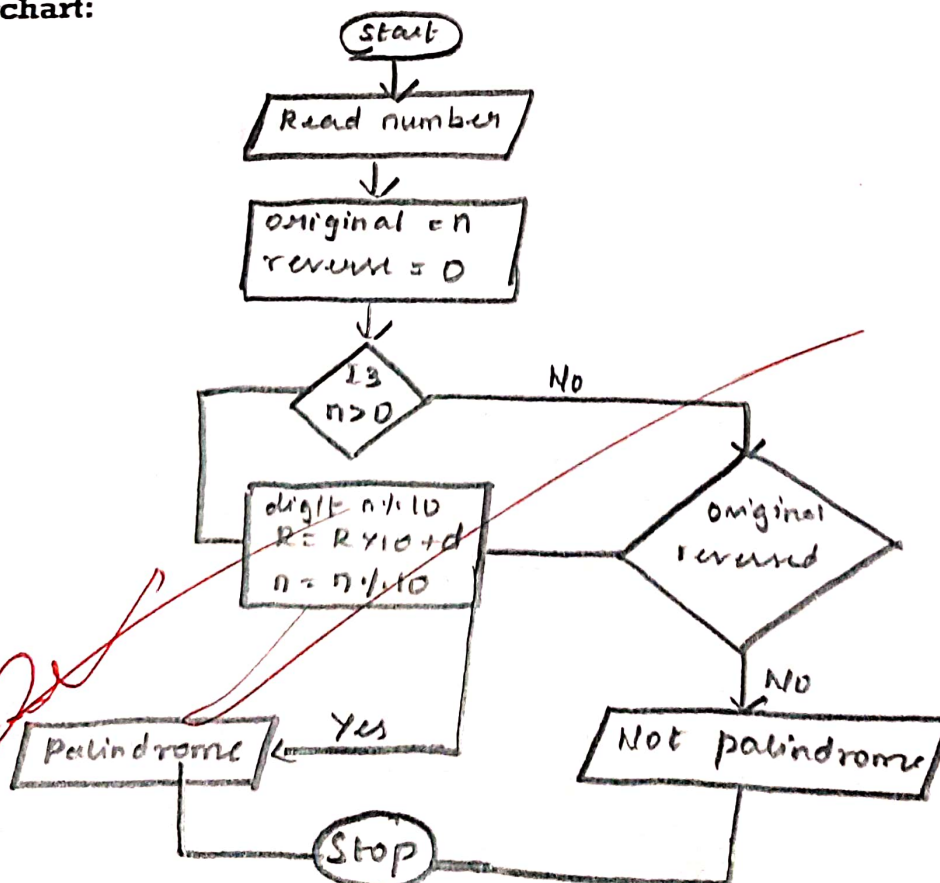 chart:
Start
Read number
original = n
reverse = 0
Is
n>0
No
digit n%10
R = R×10+d
n = n%10
original
reversed
No
Yes
Palindrome
Not palindrome
Stop